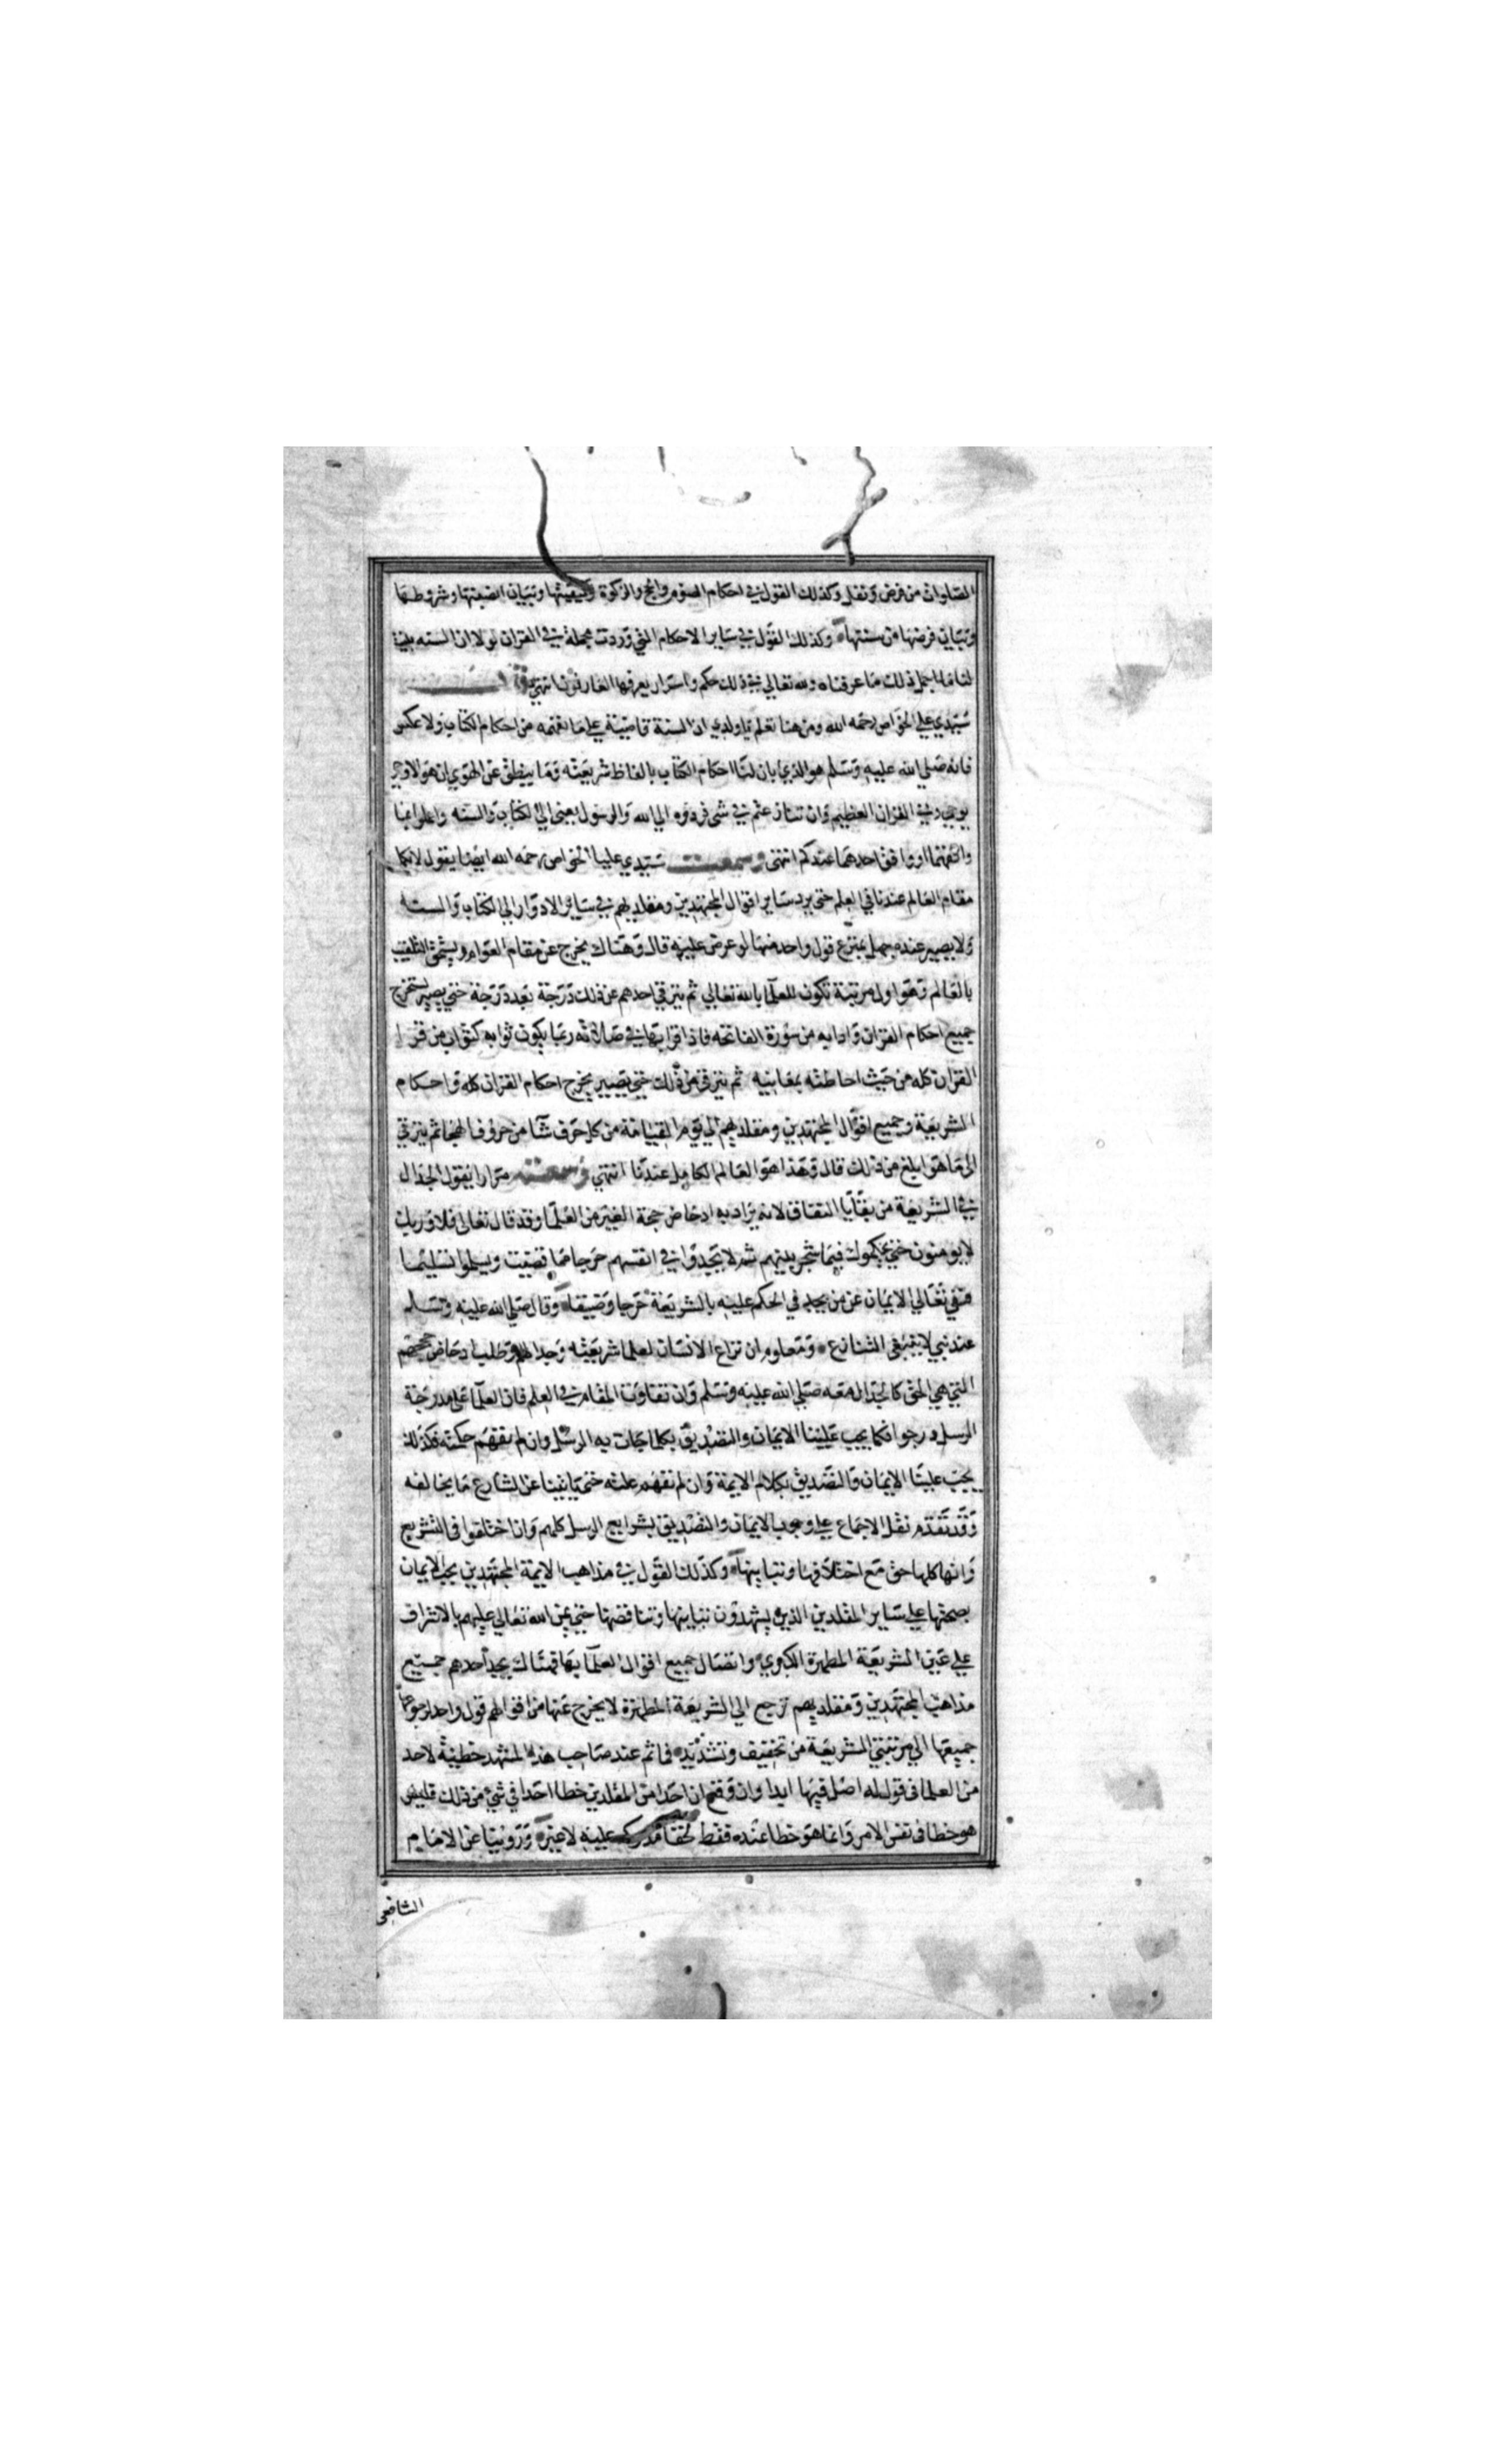 الصلوات من فرض ونفل وكذلك القول في احكام الصوم والحج والزكوة وكيفيتها وتبيان انصبتها وشروطها
وتبيان فرضها من سنتها وكذلك القول في ساير الاحكام التي وردت مجملة في القران لولا ان السنه بينت
لنا ذلك ما عرفناه ولله تعالي في ذلك حكم واسرار يعرفها العارفون انتهي
سيدي علي الخواص رحمه الله ومن هنا تعلم يا ولدي ان السنة قاضية علي ما نفهمه من احكام الكتاب ولا عكس
فانه صلي الله عليه وسلم هو الذي ابان لنا احكام الكتاب بالفاظ شريعته وما ينطق عن الهوي ان هو الا وحي
يوحي وفي القران العظيم وان تنازعتم في شي فردوه الي الله والرسول يعني الي الكتاب والسنه واعلوا بما
وافقهما او وافق احدهما عندكم انتهي وسمعت سيدي عليا الخواص رحمه الله ايضا يقول لا يكمل
مقام العالم عندنا في العلم حتي يرد ساير اقوال المجتهدين ومقلديهم في ساير الادوار الي الكتاب والسنه
ولا يصير عنده جهل بمنزع قول واحد منها لو عرض عليه قال وهناك يخرج عن مقام العوام ويستحق التلقيب
بالعالم وهو اول مرتبة تكون للعلما بالله تعالي ثم يترقي احدهم عن ذلك درجة بعد درجة حتي يصير يستخرج
جميع احكام القران وادابه من سورة الفاتحه فاذا قرا بها في صلاته ربما يكون ثوابه كثواب من قرا
القران كله من حيث احاطته بمعانيه ثم يترقي من ذلك حتي يصير يخرج احكام القران كله واحكام
الشريعة وجميع اقوال المجتهدين ومقلديهم الي يوم القيامة من كل حرف شا من حروف الهجا ثم يترقي
الي ما هو ابلغ من ذلك قال وهذا هو العالم الكامل عندنا انتهي وسمعته مرارا يقول الجدال
في الشريعة من بقايا النفاق لانه يراد به ادحاض حجة الغير من العلما وقد قال تعالي فلا وربك
لا يومنون حتي يحكموك فيما شجر بينهم ثم لا يجدوا في انفسهم حرجا مما قضيت ويسلموا تسليما
فنفي تعالي الايمان عن من يجد في الحكم عليه بالشريعة حرجا وضيقا وقال صلي الله عليه وسلم
عند نبي لا ينبغي التنازع ومعلوم ان نزاع الانسان لعلما شريعته وجدالهم وطلب ادحاض حججهم
التي هي الحق كالجدال معه صلي الله عليه وسلم وان تفاوت المقام في العلم فان العلما علي مدرجة
الرسل درجوا فكما يجب علينا الايمان والتصديق بكلما جات به الرسل وان لم نفهم حكمته فكذلك
يجب علينا الايمان والتصديق بكلام الايمة وان لم نفهم علته حتي ياتينا عن الشارع ما يخالفه
وقد تقدم نقل الاجماع علي وجوب الايمان والتصديق بشرايع الرسل كلهم وان اختلفوا في التشريع
وانها كلها حق مع اختلافها وتباينها وكذلك القول في مذاهب الايمة المجتهدين يجب الايمان
بصحتها علي ساير المقلدين الذين يشهدون تباينها وتناقضها حتي يمن الله تعالي عليهم بالاشراف
علي عين الشريعة المطهرة الكبري واتصال جميع اقوال العلما بها فهناك يجد احدهم جميع
مذاهب المجتهدين ومقلديهم ترجع الي الشريعة المطهرة لا يخرج عنها من اقوالهم قول واحد لرجوعها
جميعها الي مرتبتي الشريعة من تخفيف وتشديد فما ثم عند صاحب هذا المشهد تخطية لاحد
من العلما في قول له اصل فيها ابدا وان وقع ان احدا من المقلدين خطا احدا في شي من ذلك فليس
هو خطا في نفس الامر وانما هو خطا عنده فقط لخفا مدركه عليه لا غير وروينا عن الامام
الشافعي